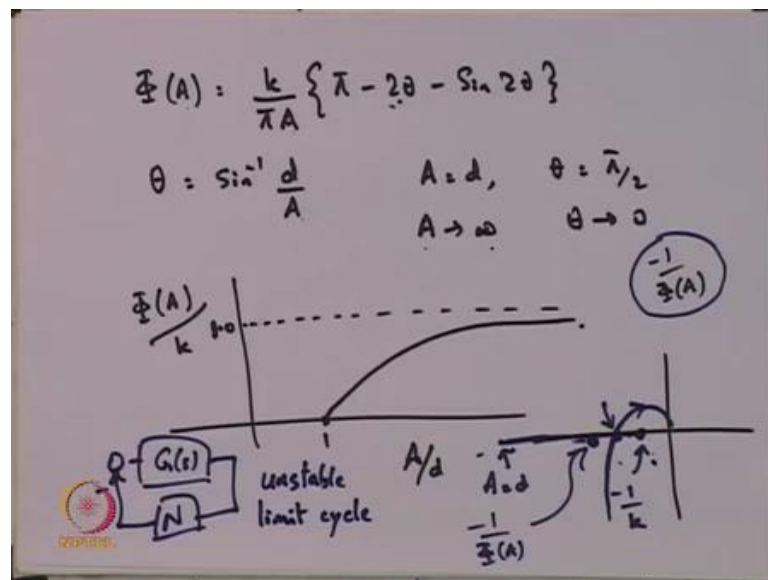 Φ(A) : k/πA { π - 2θ - Sin 2θ }
θ = Sin⁻¹ d/A   A = d,   θ = π/2
A → ∞   θ → 0
-1/Φ(A)
Φ(A)/k
1.0
1
A/d
G(s)
N
unstable
limit cycle
A=d
-1/Φ(A)
-1/k
NPTEL